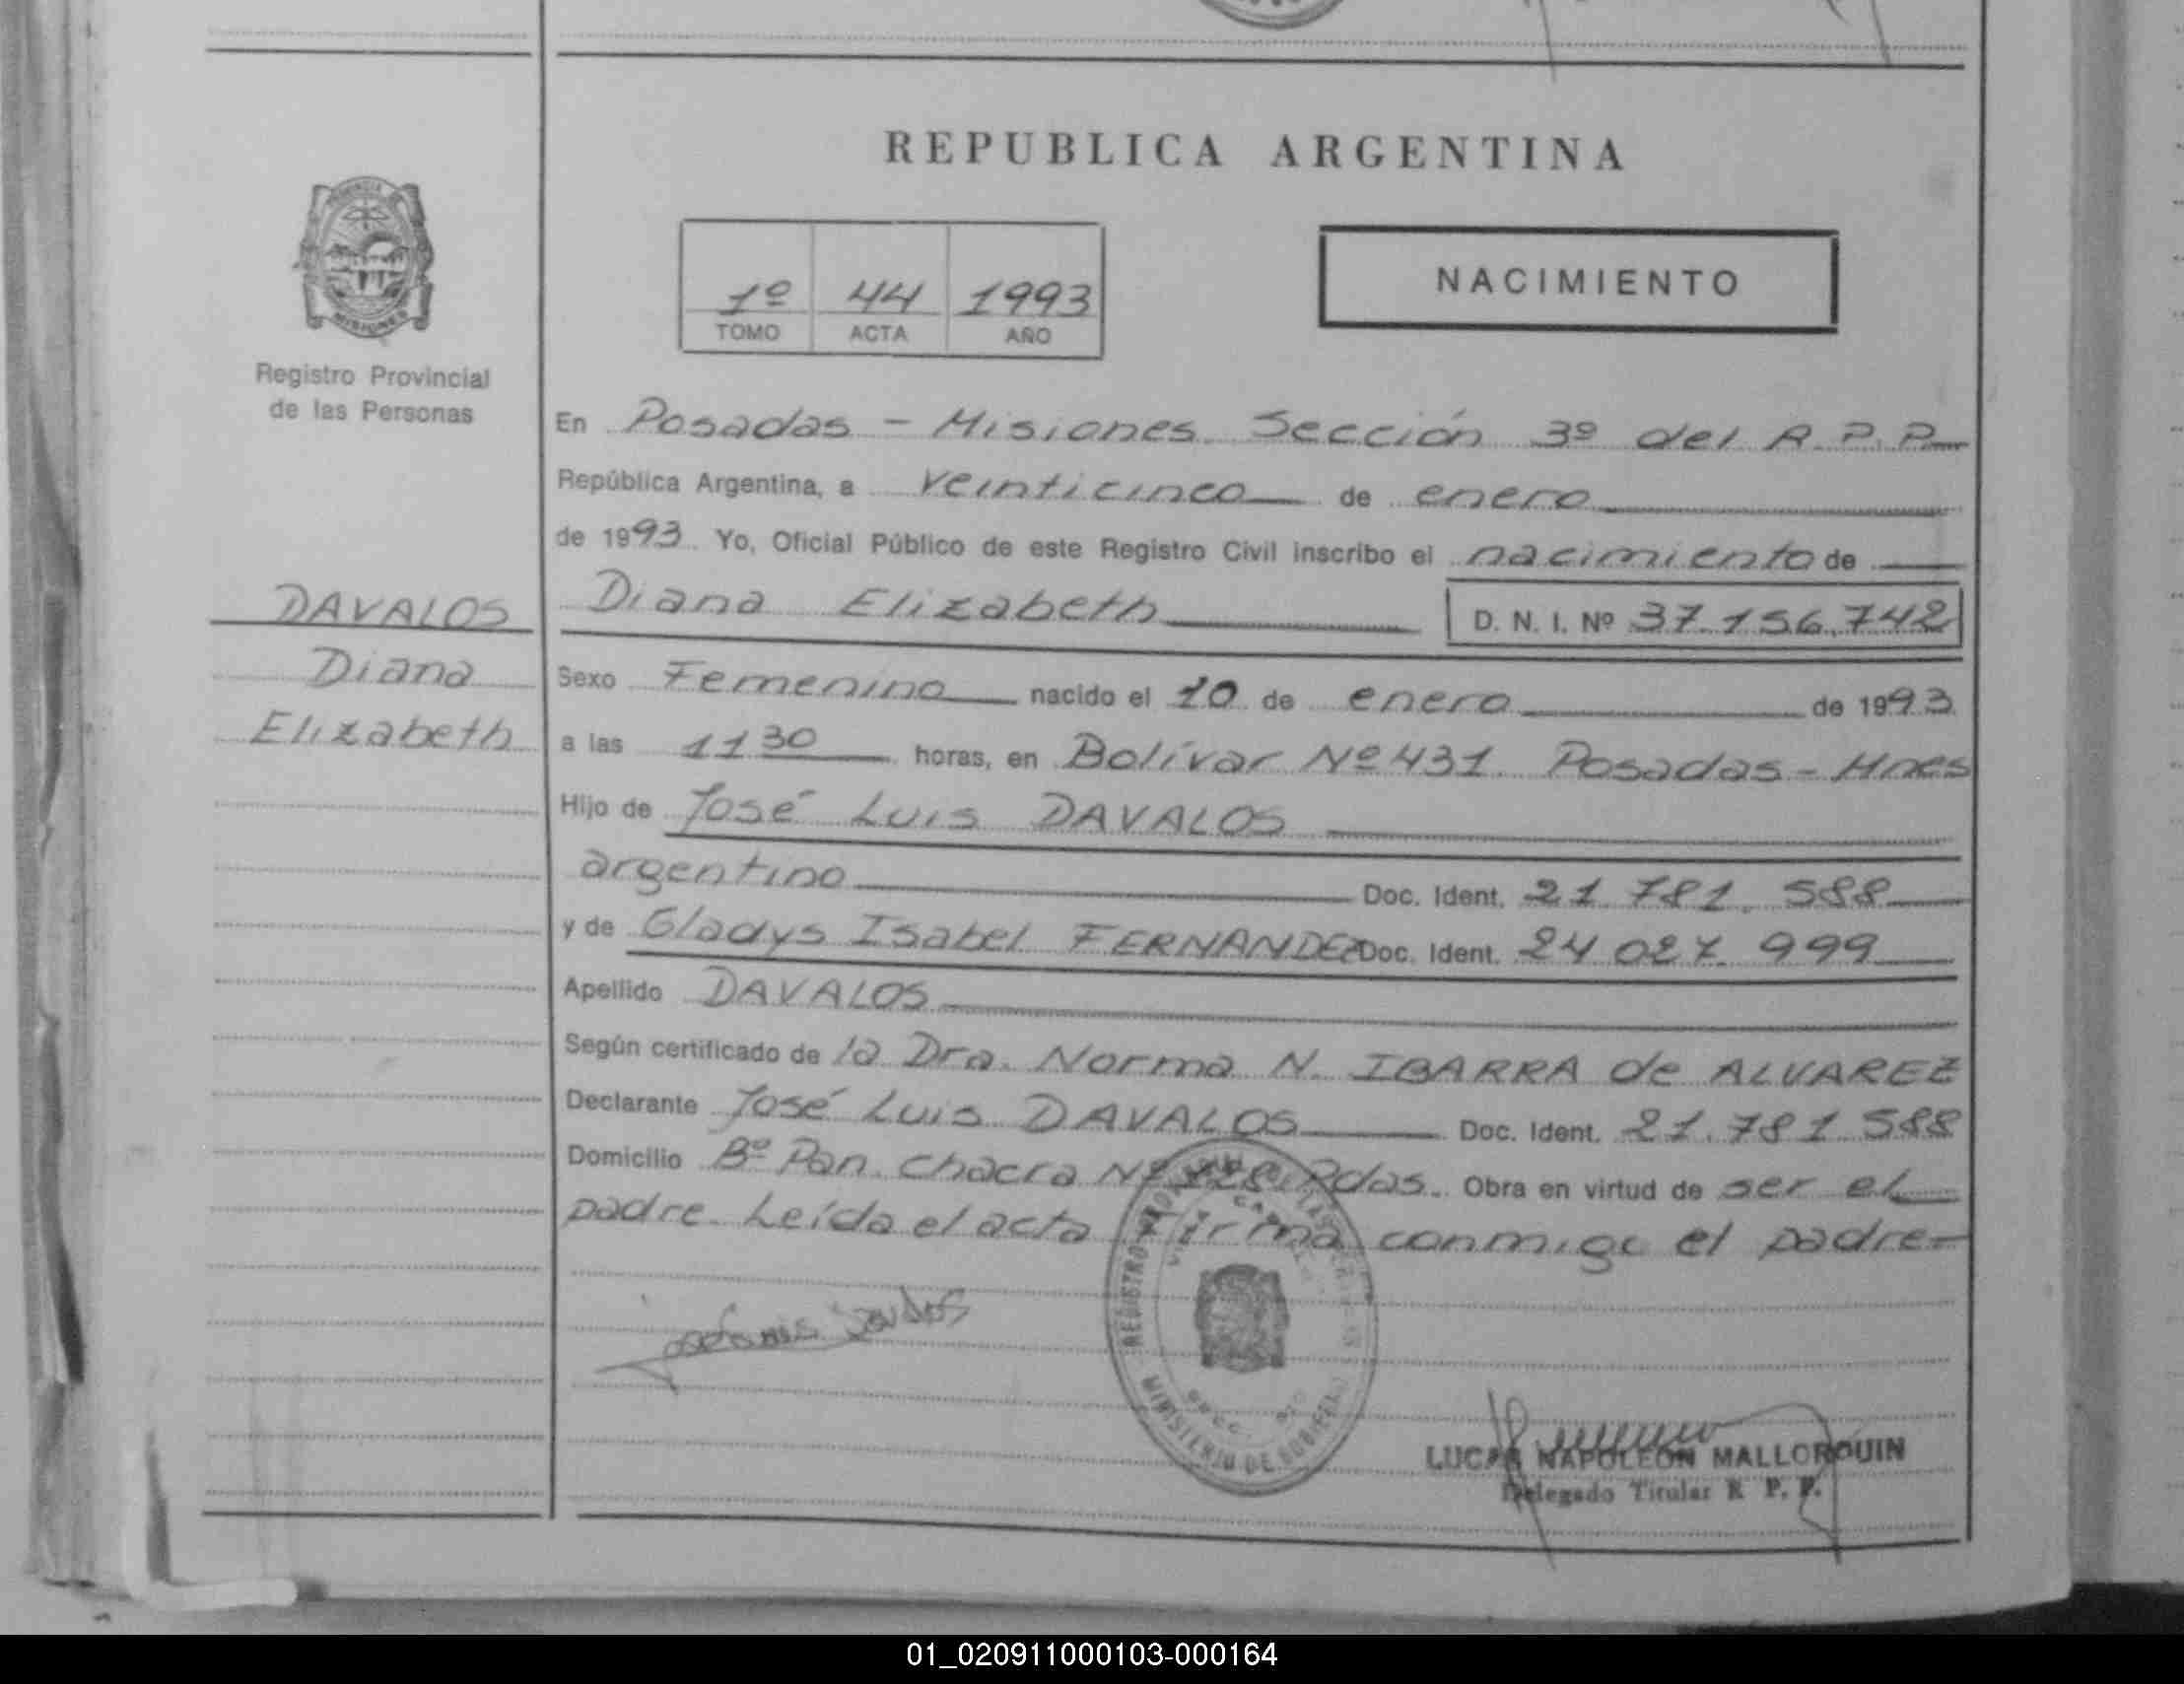 REPUBLICA ARGENTINA
1º 44 1993
TOMO ACTA AÑO
NACIMIENTO
MISIONES
Registro Provincial
de las Personas
DAVALOS
Diana
Elizabeth
En Posadas - Misiones. Sección 3º del R.P.P.
República Argentina, a veinticinco de enero
de 1993. Yo, Oficial Público de este Registro Civil inscribo el nacimiento de
Diana Elizabeth D. N. I. Nº 37.156.742
Sexo Femenino nacido el 10 de enero de 1993
a las 11 30 horas, en Bolívar Nº 431. Posadas - Mnes
Hijo de José Luis DAVALOS
argentino Doc. Ident. 21.781.588
y de Gladys Isabel FERNANDEZ Doc. Ident. 24 027 999
Apellido DAVALOS
Según certificado de la Dra. Norma N. IBARRA de ALVAREZ
Declarante José Luis DAVALOS Doc. Ident. 21.781.588
Domicilio Bº Pan. Chacra Nº Pdas. Obra en virtud de ser el
padre. Leída el acta firma conmigo el padre-
REGISTRO
MINISTERIO DE GOBIERNO
LUCAS NAPOLEON MALLORQUIN
Delegado Titular R. P. P.
01_020911000103-000164